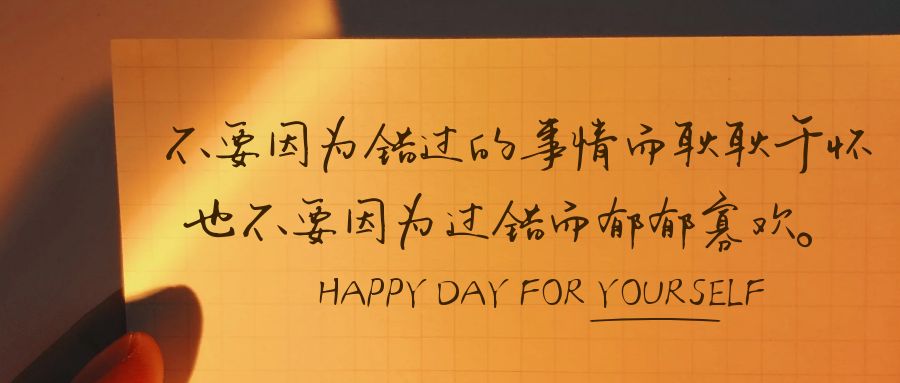 不要因为错过的事情而耿耿于怀
也不要因为过错而郁郁寡欢。
HAPPY DAY FOR YOURSELF